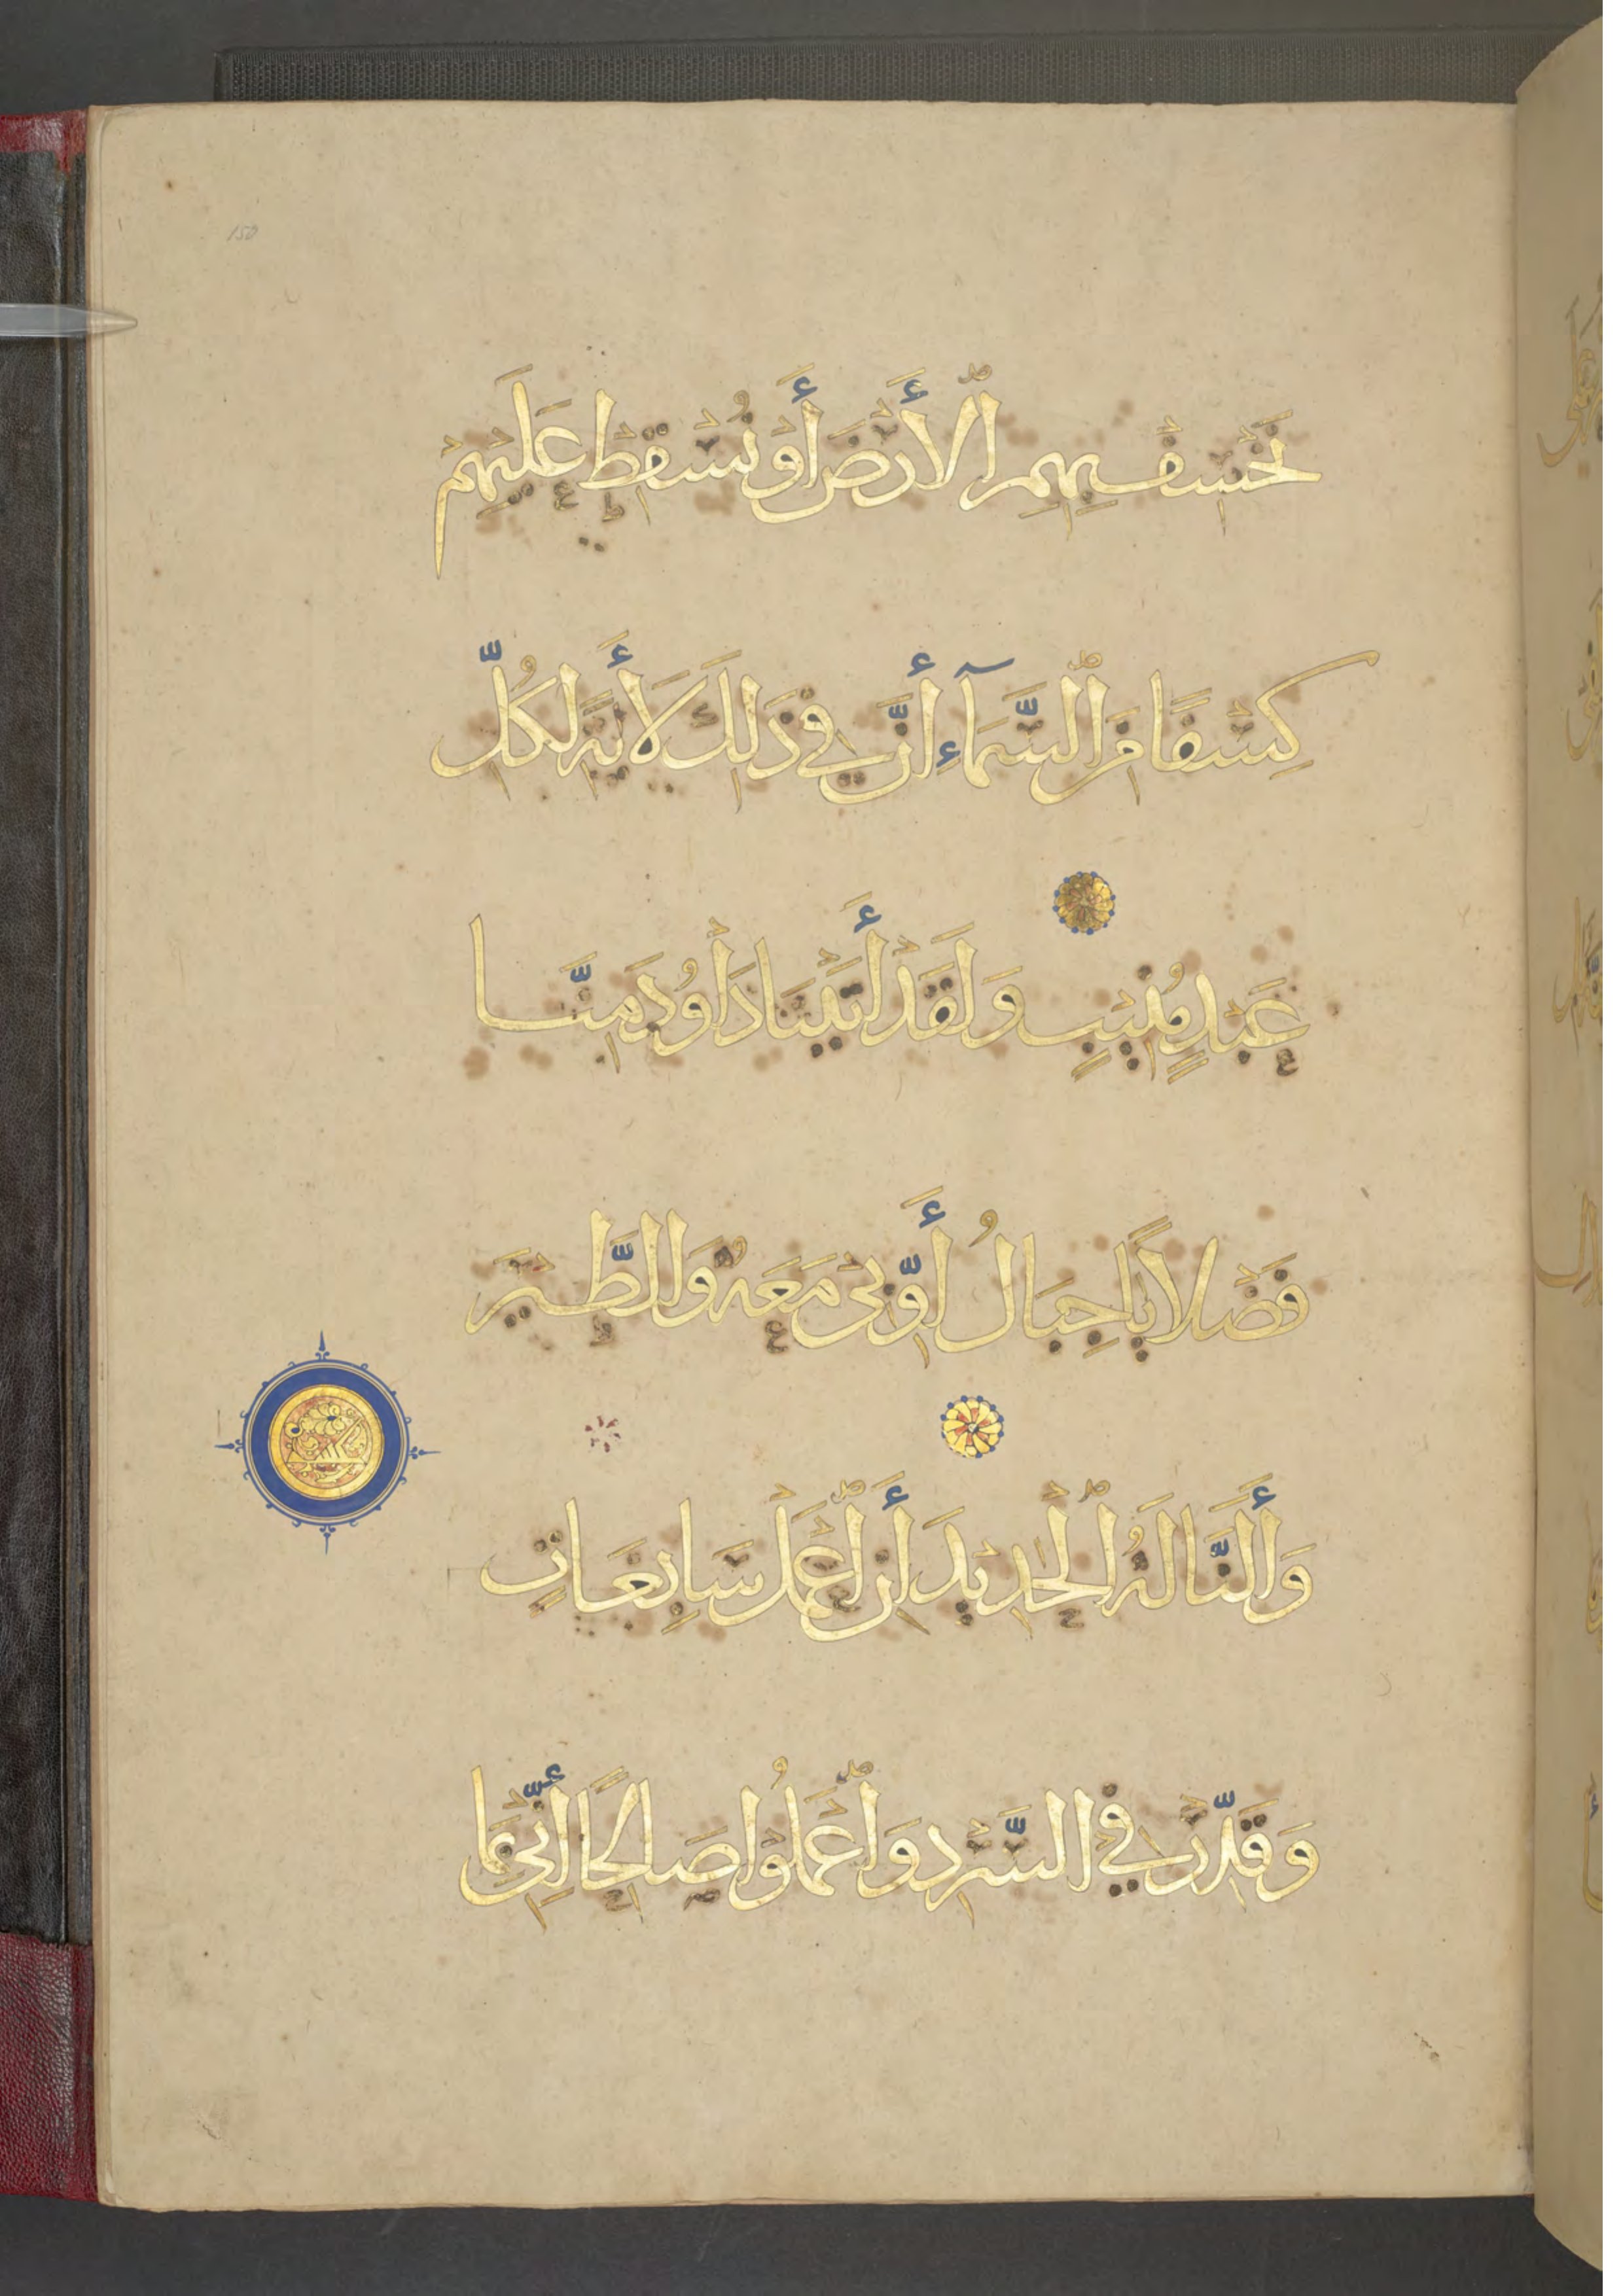 150
نَخْسِفْ بِهِمِ ٱلْأَرْضَ أَوْ نُسْقِطْ عَلَيْهِمْ
كِسْفًا مِنَ ٱلسَّمَآءِ أِنَّ فِي ذَلِكَ لَأَيَةً لِكُلِّ
عَبْدٍ مُنِيبٍ وَلَقَدْ أَتَيْنَا دَاوُدَ مِنَّا
فَضْلًا يَا جِبَالُ أَوِّبِي مَعَهُ وَالطَّيْرَ
وَأَلَنَّا لَهُ ٱلْحَدِيدَ أَنِ ٱعْمَلْ سَابِغَاتٍ
وَقَدِّرْ فِي السَّرْدِ وَٱعْمَلُوا صَالِحًا أِنِّي بِمَا